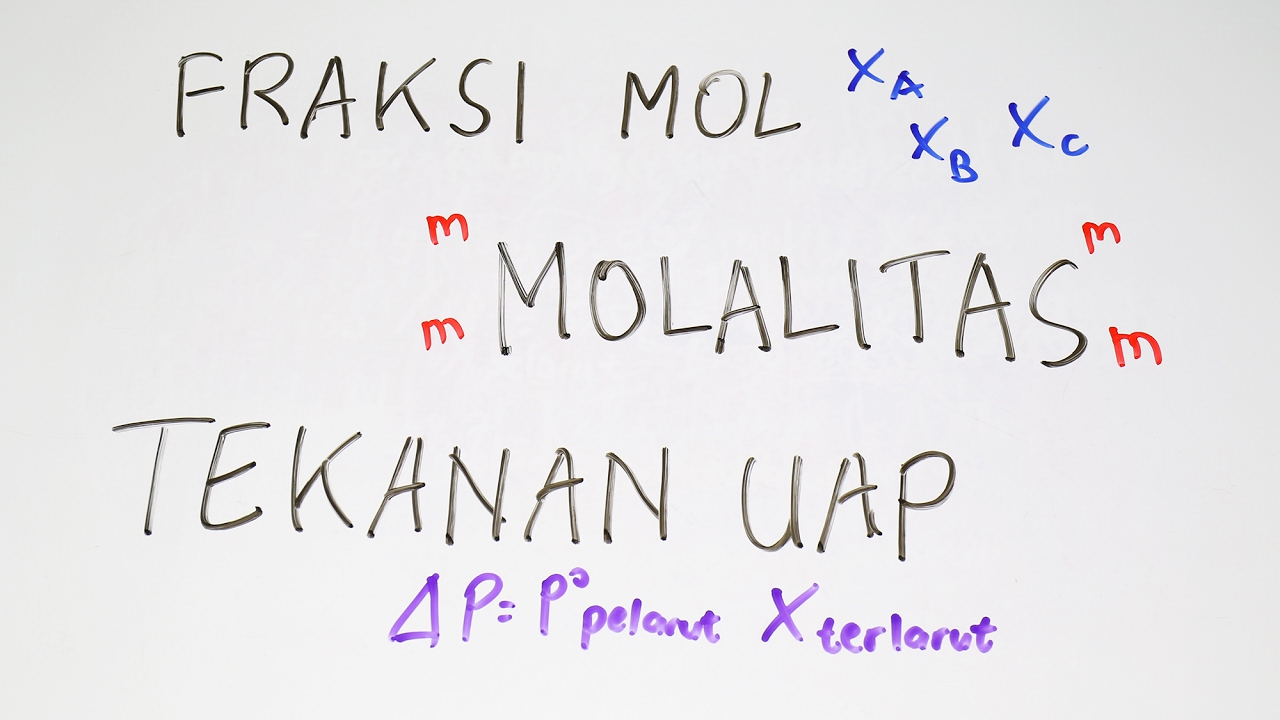 FRAKSI MOL XA XB XC
m MOLALITAS m
m m
TEKANAN UAP
ΔP = P° pelarut X terlarut